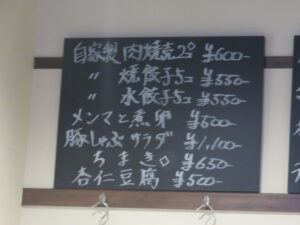 自家製 肉焼売2コ ¥600-
〃 焼餃子5コ ¥550-
〃 水餃子5コ ¥550-
メンマと煮卵 ¥500-
豚しゃぶサラダ ¥1,100-
ちまき ¥650-
杏仁豆腐 ¥500-